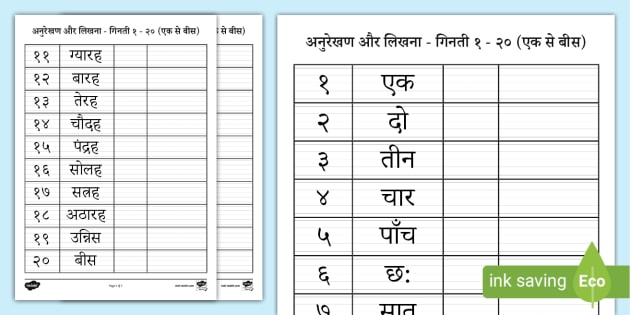 अनुरेखण और लिखना - गिनती १ - २० (एक से बीस)
११ ग्यारह
१२ बारह
१३ तेरह
१४ चौदह
१५ पंद्रह
१६ सोलह
१७ सत्रह
१८ अठारह
१९ उन्निस
२० बीस
से बीस)
अनुरेखण और लिखना - गिनती १ - २० (एक से बीस)
१ एक
२ दो
३ तीन
४ चार
५ पाँच
६ छ:
७ सात
ink saving Eco